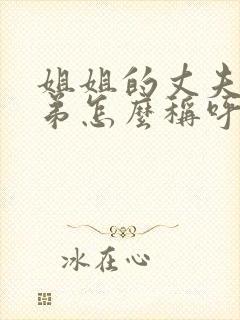 姐姐的丈夫
弟怎麼稱呼
冰在心